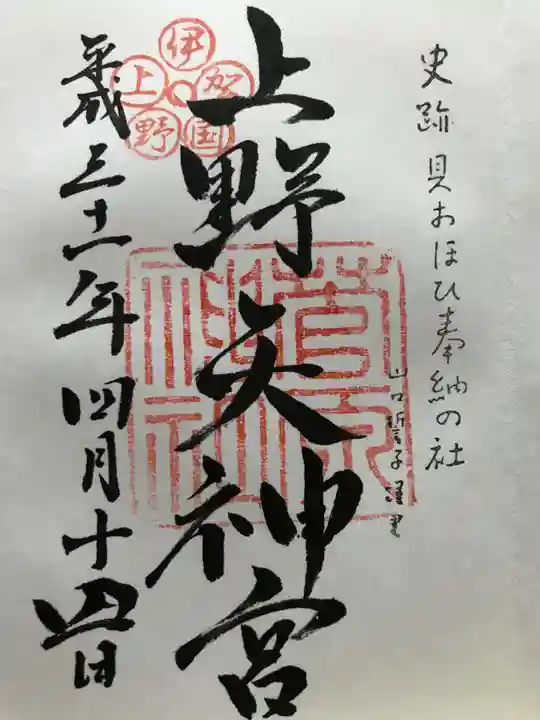 史跡 貝おほひ奉納の社
山口誓子
上野天神宮
伊賀国上野
平成三十一年四月十四日